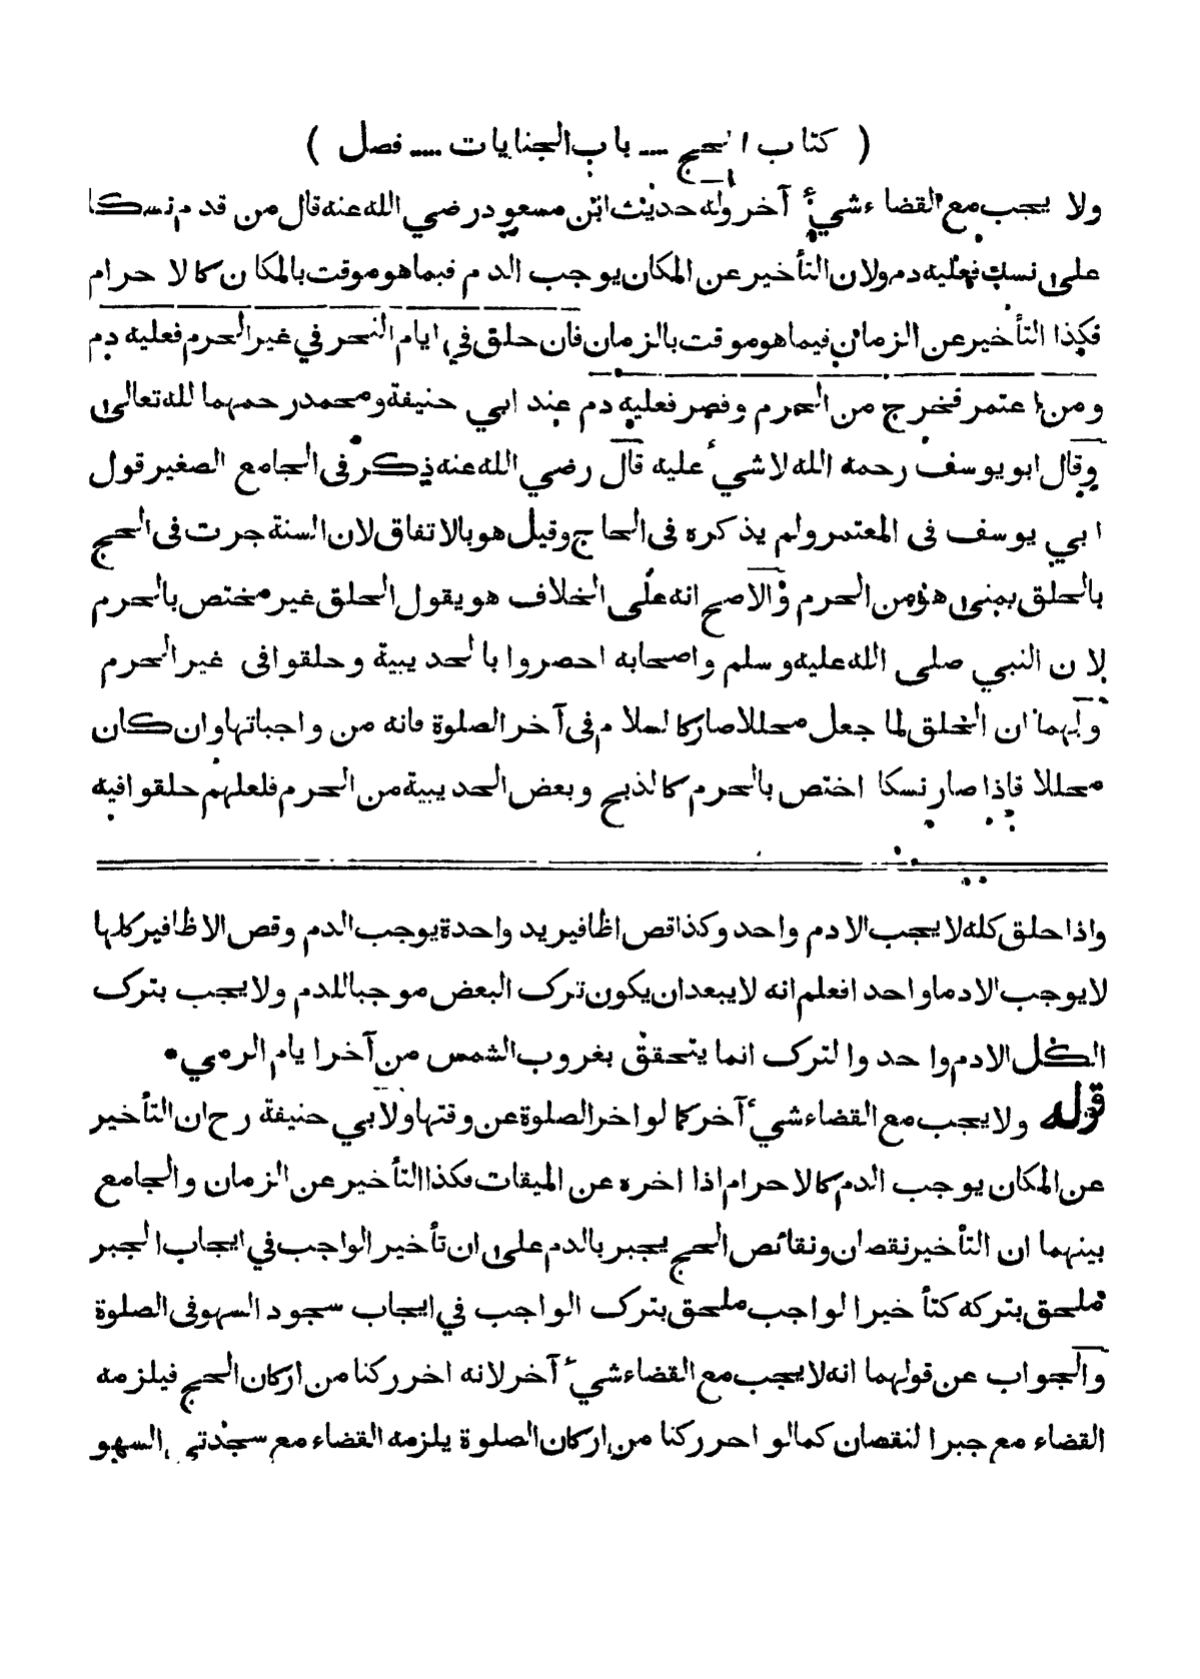 ( كتاب الحج — باب الجنايات — فصل )
ولا يجب مع القضاء شيء آخر وله حديث ابن مسعود رضي الله عنه قال من قدم نسكا
على نسك فعليه دم ولان التأخير عن المكان يوجب الدم فيما هو موقت بالمكان كالاحرام
فكذا التأخير عن الزمان فيما هو موقت بالزمان فان حلق في ايام النحر في غير الحرم فعليه دم
ومن اعتمر فخرج من الحرم وقصر فعليه دم عند ابي حنيفة ومحمد رحمهما الله تعالى
وقال ابو يوسف رحمه الله لا شيء عليه قال رضي الله عنه ذكر فى الجامع الصغير قول
ابي يوسف فى المعتمر ولم يذكره فى الحاج وقيل هو بالاتفاق لان السنة جرت فى الحج
بالحلق بمنى وهو من الحرم والاصح انه على الخلاف هو يقول الحلق غير مختص بالحرم
لان النبي صلى الله عليه وسلم واصحابه احصروا بالحديبية وحلقوا فى غير الحرم
ولهما ان الحلق لما جعل محللا صار كالسلام فى آخر الصلوة فانه من واجباتها وان كان
محللا فاذا صار نسكا اختص بالحرم كالذبح وبعض الحديبية من الحرم فلعلهم حلقوا فيه
واذا حلق كله لا يجب الا دم واحد وكذا قص اظافير يد واحدة يوجب الدم وقص الاظافير كلها
لا يوجب الا دما واحدا فعلم انه لا يبعد ان يكون ترك البعض موجبا للدم ولا يجب بترك
الكل الا دم واحد والترك انما يتحقق بغروب الشمس من آخر ايام الرمي •
قوله ولا يجب مع القضاء شيء آخر كما لو اخر الصلوة عن وقتها ولابي حنيفة رح ان التأخير
عن المكان يوجب الدم كالاحرام اذا اخره عن الميقات فكذا التأخير عن الزمان والجامع
بينهما ان التأخير نقصان ونقائص الحج يجبر بالدم على ان تأخير الواجب في ايجاب الجبر
ملحق بتركه كتأخير الواجب ملحق بترك الواجب في ايجاب سجود السهو فى الصلوة
والجواب عن قولهما انه لا يجب مع القضاء شيء آخر لانه اخر ركنا من اركان الحج فيلزمه
القضاء مع جبر النقصان كما لو اخر ركنا من اركان الصلوة يلزمه القضاء مع سجدتي السهو